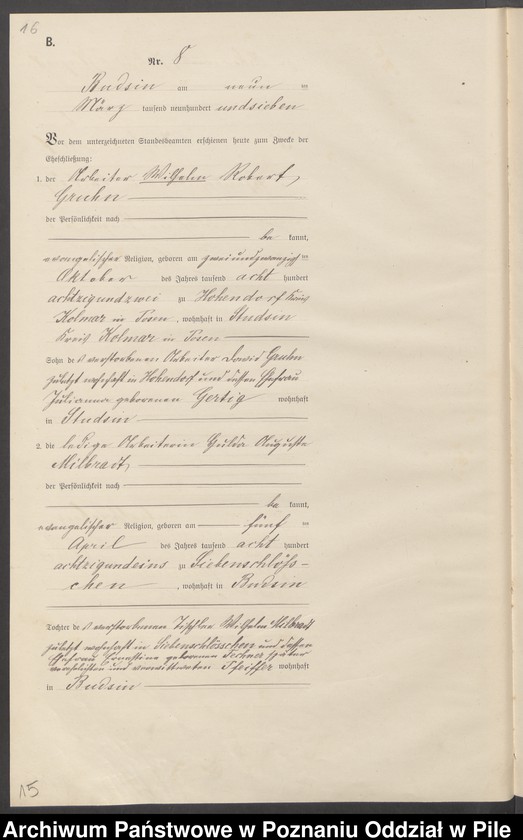 16
B.
Nr. 8
Budsin am neun ten
März tausend neunhundert und sieben
Vor dem unterzeichneten Standesbeamten erschienen heute zum Zwecke der
Eheschließung:
1. der Arbeiter Wilhelm Robert
Gruhn
der Persönlichkeit nach
be kannt,
evangelischer Religion, geboren am zweiundzwanzig ten
Oktober des Jahres tausend acht hundert
achtzigundzwei zu Hohendorf Kreis
Kolmar in Posen, wohnhaft in Studsin
Kreis Kolmar in Posen
Sohn des verstorbenen Arbeiter David Gruhn
zuletzt wohnhaft in Hohendorf und dessen Ehefrau
Julianna geborenen Gertig wohnhaft
in Studsin
2. die ledige Arbeiterin Hulda Auguste
Milbradt
der Persönlichkeit nach
be kannt,
evangelischer Religion, geboren am fünf ten
April des Jahres tausend acht hundert
achtzigundeins zu Siebenschlöss-
chen, wohnhaft in Budsin
Tochter des verstorbenen Tischler Wilhelm Milbradt
zuletzt wohnhaft in Siebenschlösschen und dessen
Ehefrau Ernestine geborenen später
verehelichten und verwittweten Pfeiffer wohnhaft
in Budsin
15
Archiwum Państwowe w Poznaniu Oddział w Pile